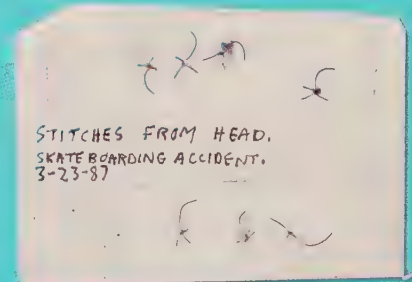 STITCHES FROM HEAD.
SKATEBOARDING ACCIDENT.
3-23-87